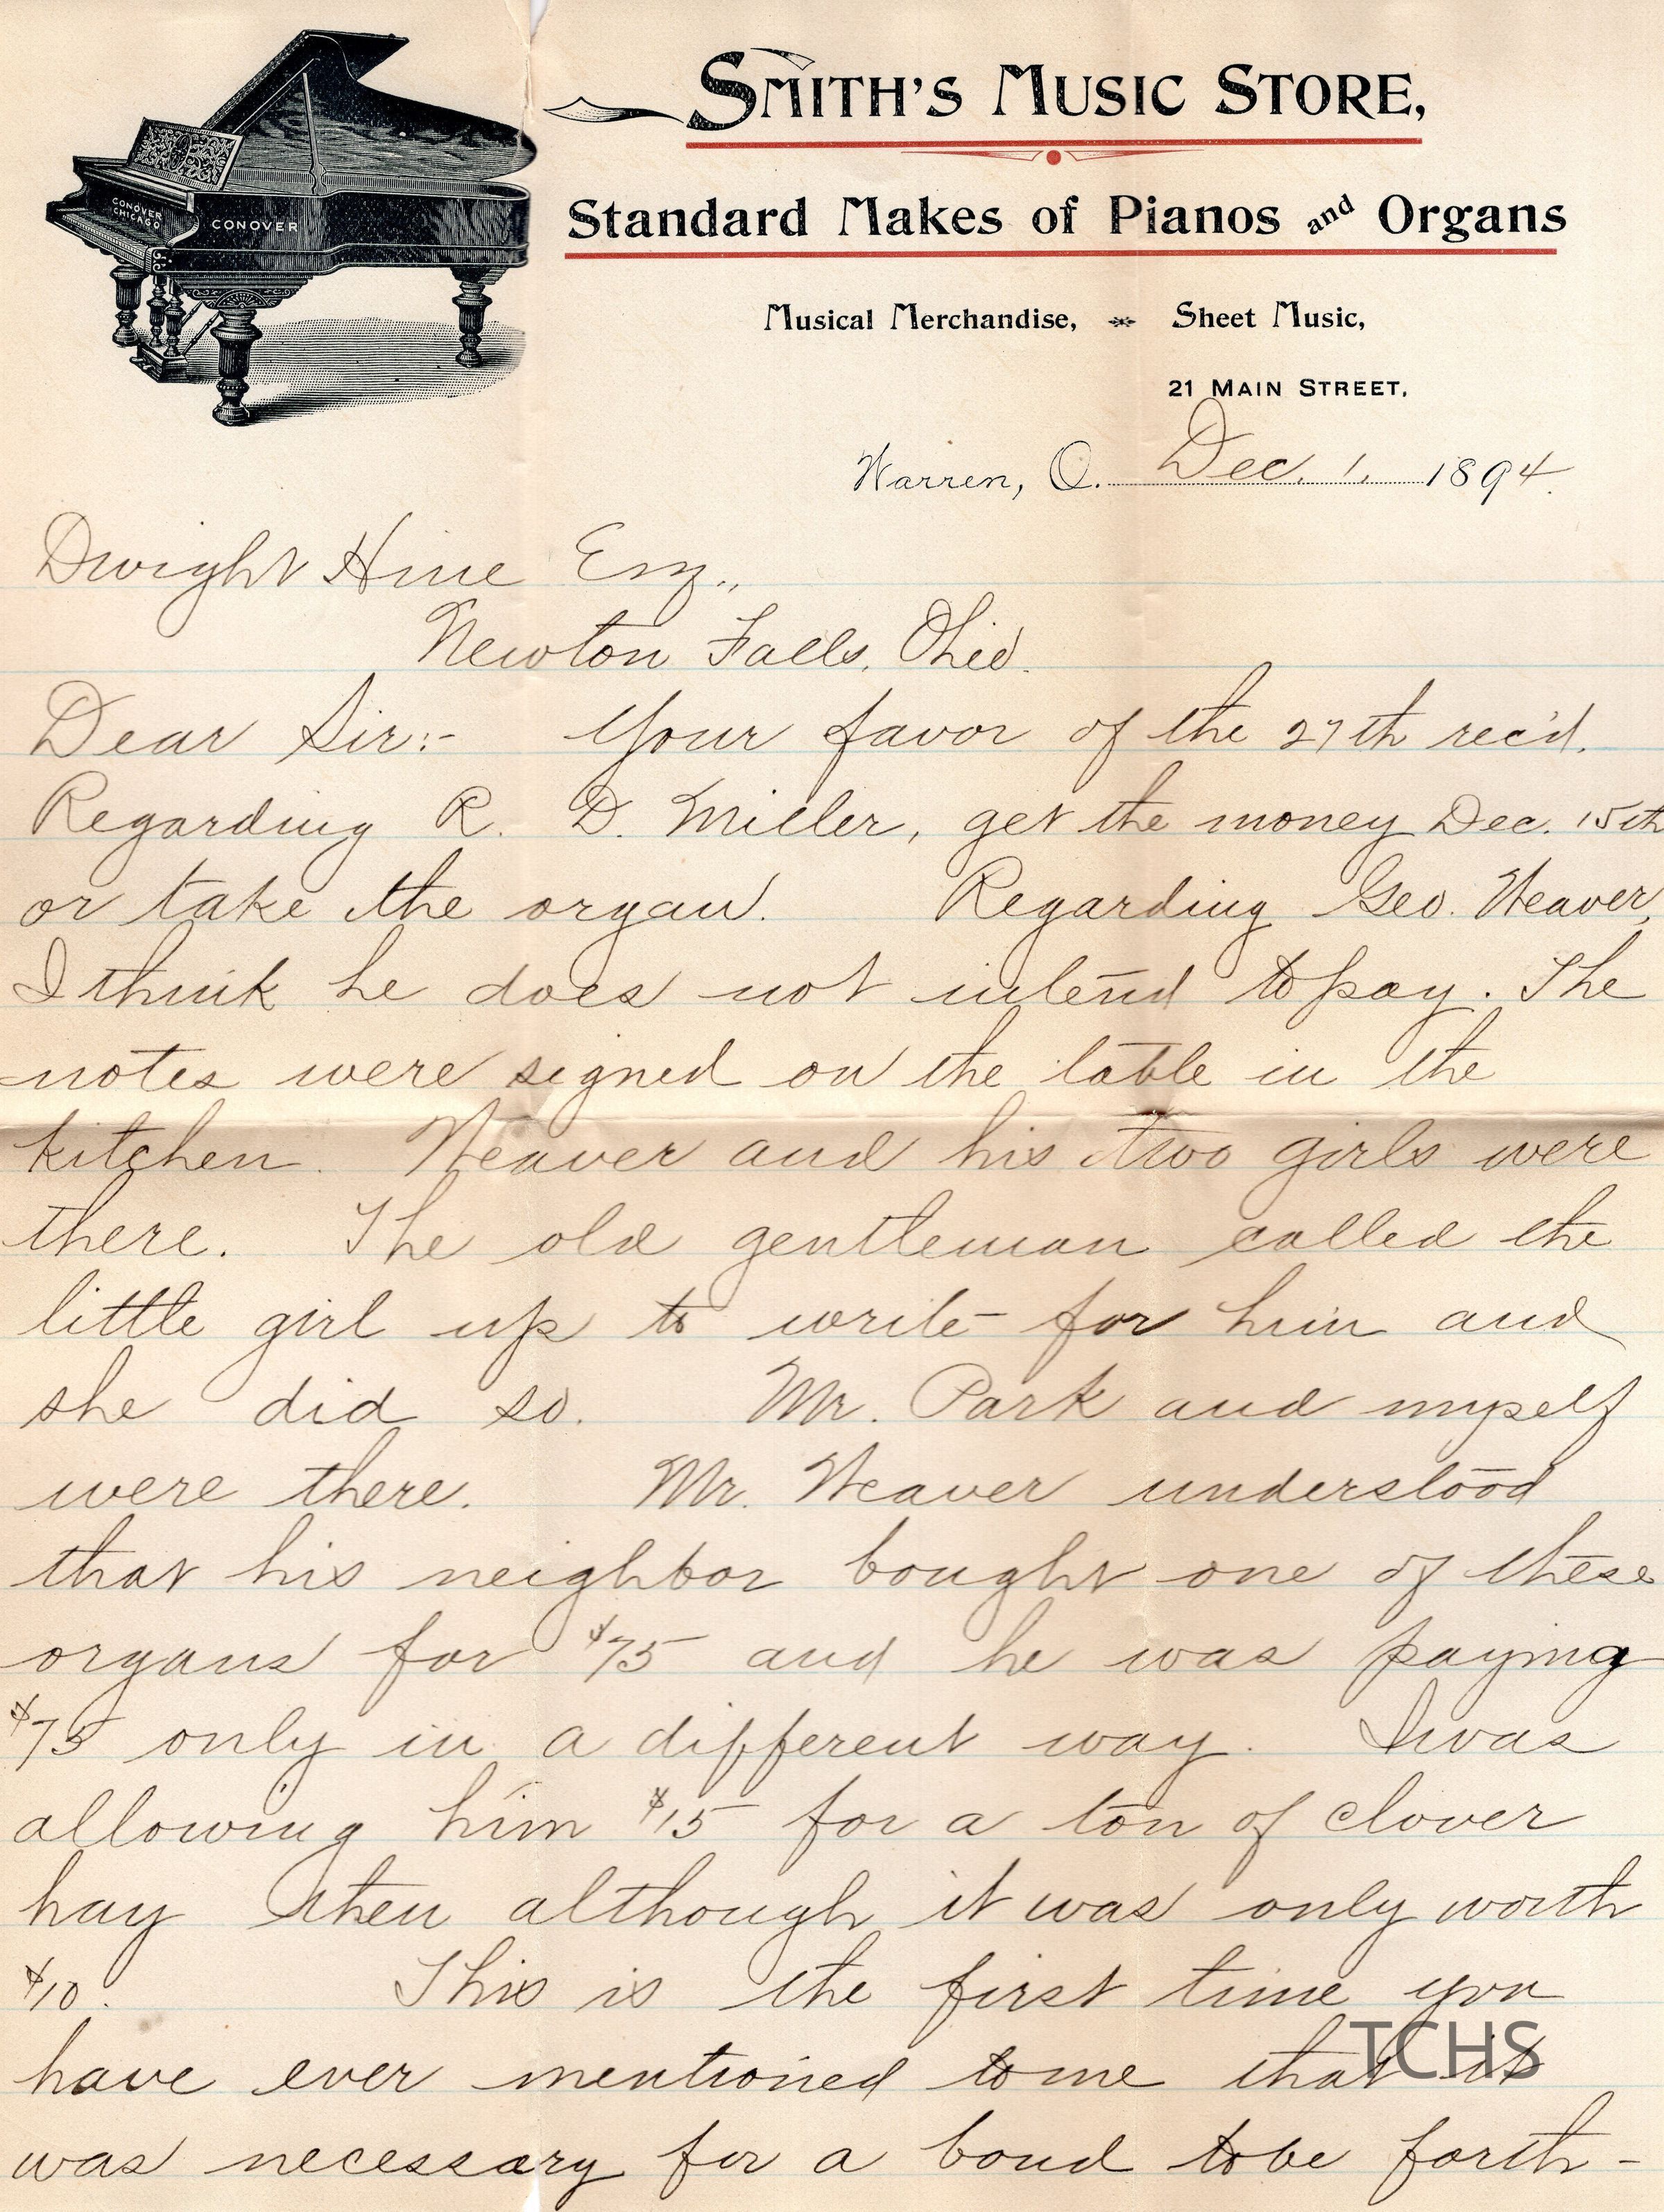 SMITH'S MUSIC STORE,
Standard Makes of Pianos and Organs
CONOVER
CHICAGO
CONOVER
Musical Merchandise, Sheet Music,
21 MAIN STREET.
Warren, O. Dec. 1, 1894.
Dwight Hine Esq.,
Newton Falls, Ohio.
Dear Sir:- Your favor of the 27th rec'd.
Regarding R. D. Miller, get the money Dec. 15th
or take the organ. Regarding Geo. Weaver,
I think he does not intend to pay. The
notes were signed on the table in the
kitchen. Weaver and his two girls were
there. The old gentleman called the
little girl up to write for him and
she did so. Mr. Park and myself
were there. Mr. Weaver understood
that his neighbor bought one of these
organs for $75 and he was paying
$75 only in a different way. I was
allowing him $15 for a ton of clover
hay then although it was only worth
$10. This is the first time you
have ever mentioned to me that it
TCHS
was necessary for a bond to be forth-